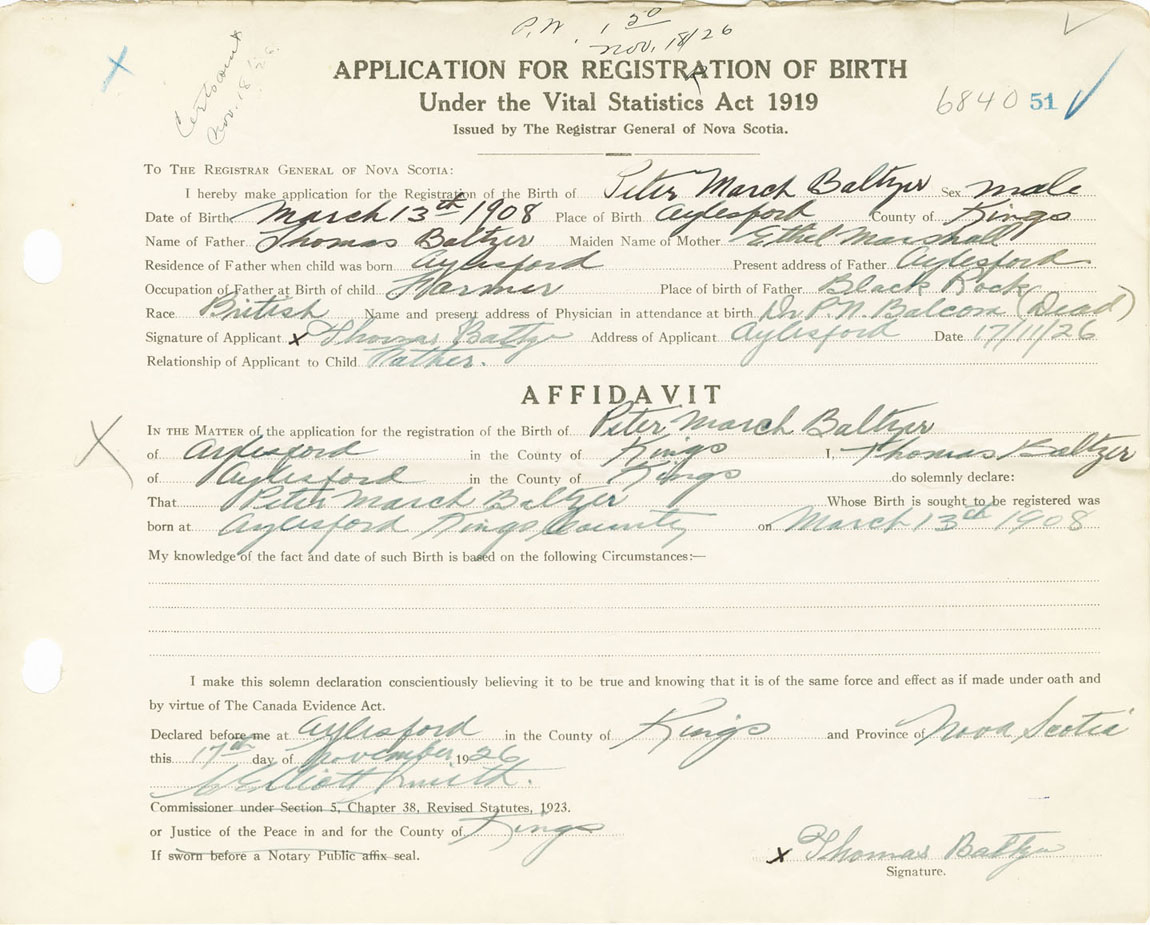 P.W. 1 50
Nov. 18/26
Nov. 18/26.
APPLICATION FOR REGISTRATION OF BIRTH
Under the Vital Statistics Act 1919
6840 51
Issued by The Registrar General of Nova Scotia.
TO THE REGISTRAR GENERAL OF NOVA SCOTIA:
I hereby make application for the Registration of the Birth of Peter March Baltzer Sex male
Date of Birth March 13th 1908 Place of Birth Aylesford County of Kings
Name of Father Thomas Baltzer Maiden Name of Mother Ethel Marshall
Residence of Father when child was born Aylesford Present address of Father Aylesford
Occupation of Father at Birth of child Farmer Place of birth of Father Black Rock
Race British Name and present address of Physician in attendance at birth Dr. P. N. Balcom (Dead)
Signature of Applicant x Thomas Baltze Address of Applicant Aylesford Date 17/11/26
Relationship of Applicant to Child Father.
AFFIDAVIT
IN THE MATTER of the application for the registration of the Birth of Peter March Baltzer
of Aylesford in the County of Kings I, Thomas Baltzer
of Aylesford in the County of Kings do solemnly declare:
That Peter March Baltzer Whose Birth is sought to be registered was
born at Aylesford Kings County on March 13th 1908
My knowledge of the fact and date of such Birth is based on the following Circumstances:—
I make this solemn declaration conscientiously believing it to be true and knowing that it is of the same force and effect as if made under oath and
by virtue of The Canada Evidence Act.
Declared before me at Aylesford in the County of Kings and Province of Nova Scotia
this 17th day of November 1926
Elliott Smith.
Commissioner under Section 5, Chapter 38, Revised Statutes, 1923.
or Justice of the Peace in and for the County of Kings
If sworn before a Notary Public affix seal.
x Thomas Baltze
Signature.